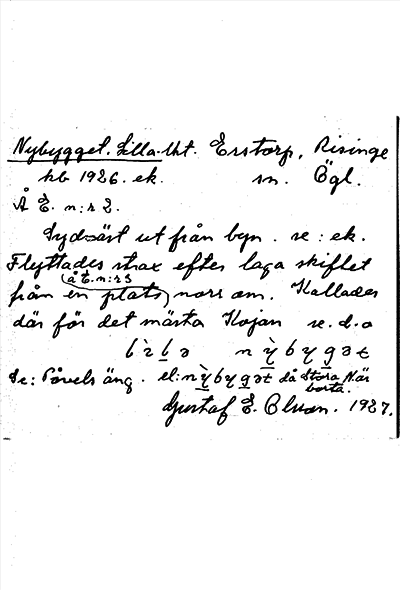 Nybygget. Lilla. tht. Erstorp, Risinge
hb 1926. ek. sn. Ögl.
Å E. n:r 2.
Sydväst ut från byn. se: ek.
Flyttades strax efter laga skiftet
(å E. n:r 3
från en plats) norr om. Kallades
där för det mästa Kojan se. d. o
Se: Påvels äng. el: då Stora N. är
borta.
Gustaf E. Bluon. 1927.